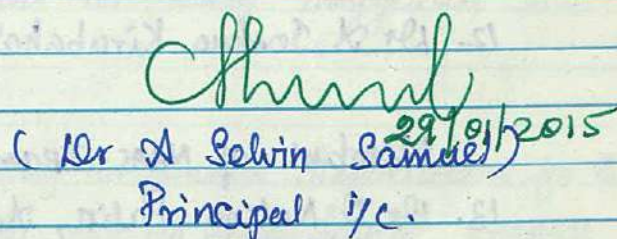 29/01/2015
(Dr A Selvin Samuel)
Principal i/c.